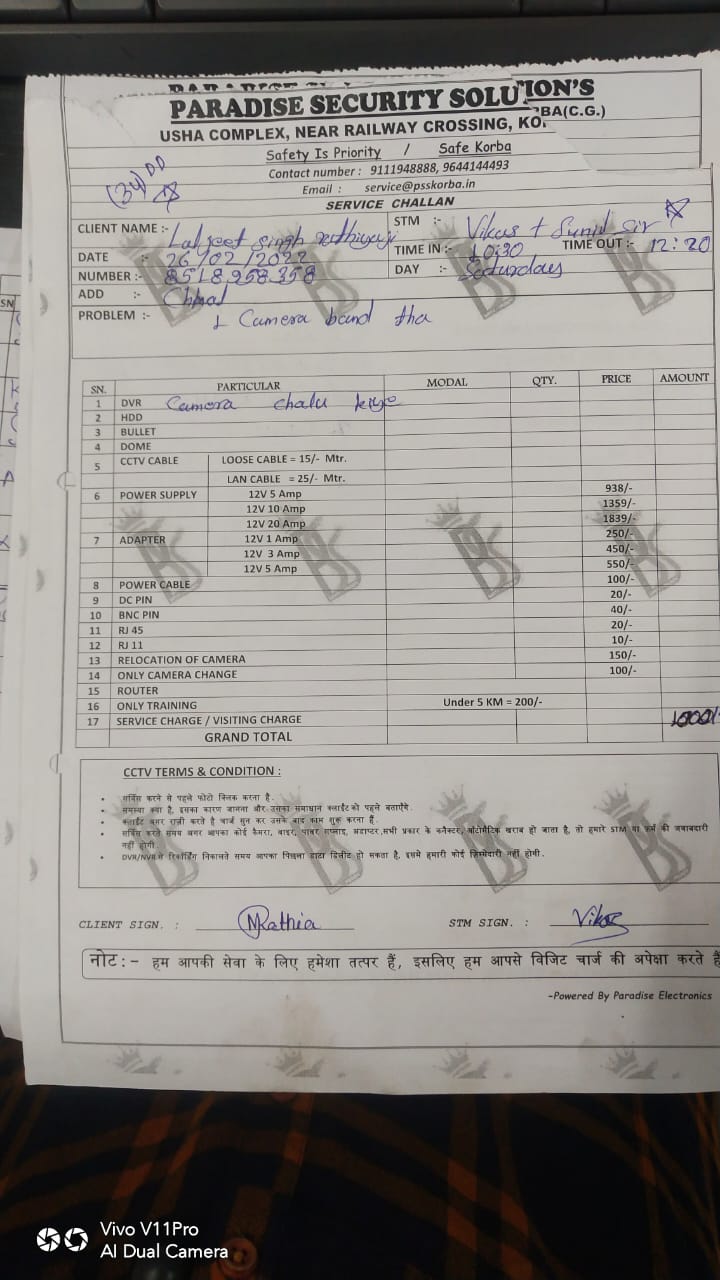 PARADISE SECURITY SOLUTION'S
USHA COMPLEX, NEAR RAILWAY CROSSING, KO BA(C.G.)
Safety Is Priority / Safe Korba
Contact number : 9111948888, 9644144493
Email : service@psskorba.in
SERVICE CHALLAN
(34) DD
CLIENT NAME :- Laljeet singh
STM :- Vikas + Sunil sir
DATE :- 26/02/2022
TIME IN :- 10:30 TIME OUT :- 12:20
NUMBER :- 8518958358
DAY :- Saturday
ADD :- Chhal
PROBLEM :- 1 Camera band tha
SN. PARTICULAR MODAL QTY. PRICE AMOUNT
1 DVR Camera chalu kiye
2 HDD
3 BULLET
4 DOME
5 CCTV CABLE LOOSE CABLE = 15/- Mtr.
LAN CABLE = 25/- Mtr.
6 POWER SUPPLY 12V 5 Amp 938/-
12V 10 Amp 1359/-
12V 20 Amp 1839/-
7 ADAPTER 12V 1 Amp 250/-
12V 3 Amp 450/-
12V 5 Amp 550/-
8 POWER CABLE 100/-
9 DC PIN 20/-
10 BNC PIN 40/-
11 RJ 45 20/-
12 RJ 11 10/-
13 RELOCATION OF CAMERA 150/-
14 ONLY CAMERA CHANGE 100/-
15 ROUTER
16 ONLY TRAINING Under 5 KM = 200/-
17 SERVICE CHARGE / VISITING CHARGE 1000/-
GRAND TOTAL
CCTV TERMS & CONDITION :
• सर्विस करने से पहले फोटो क्लिक करना है.
• समस्या क्या है, इसका कारण जानना और उसका समाधान क्लाईंट को पहले बताएँगे.
• क्लाईंट अगर राज़ी करते है चार्ज सुन कर उसके बाद काम शुरू करना हैं.
• सर्विस करते समय अगर आपका कोई कैमरा, वायर, पावर सप्लाइ, अडाप्टर,सभी प्रकार के कनैक्टर, ऑटोमैटिक खराब हो जाता है, तो हमारे STM या फ़र्म की जवाबदारी
नहीं होगी.
• DVR/NVR से रिकॉर्डिंग निकालते समय आपका पिछला डाटा डिलीट हो सकता है, इसमे हमारी कोई ज़िम्मेदारी नहीं होगी.
CLIENT SIGN. : Rathia STM SIGN. : Vikas
नोट : - हम आपकी सेवा के लिए हमेशा तत्पर हैं, इसलिए हम आपसे विजिट चार्ज की अपेक्षा करते हैं
-Powered By Paradise Electronics
SN
Vivo V11Pro
AI Dual Camera